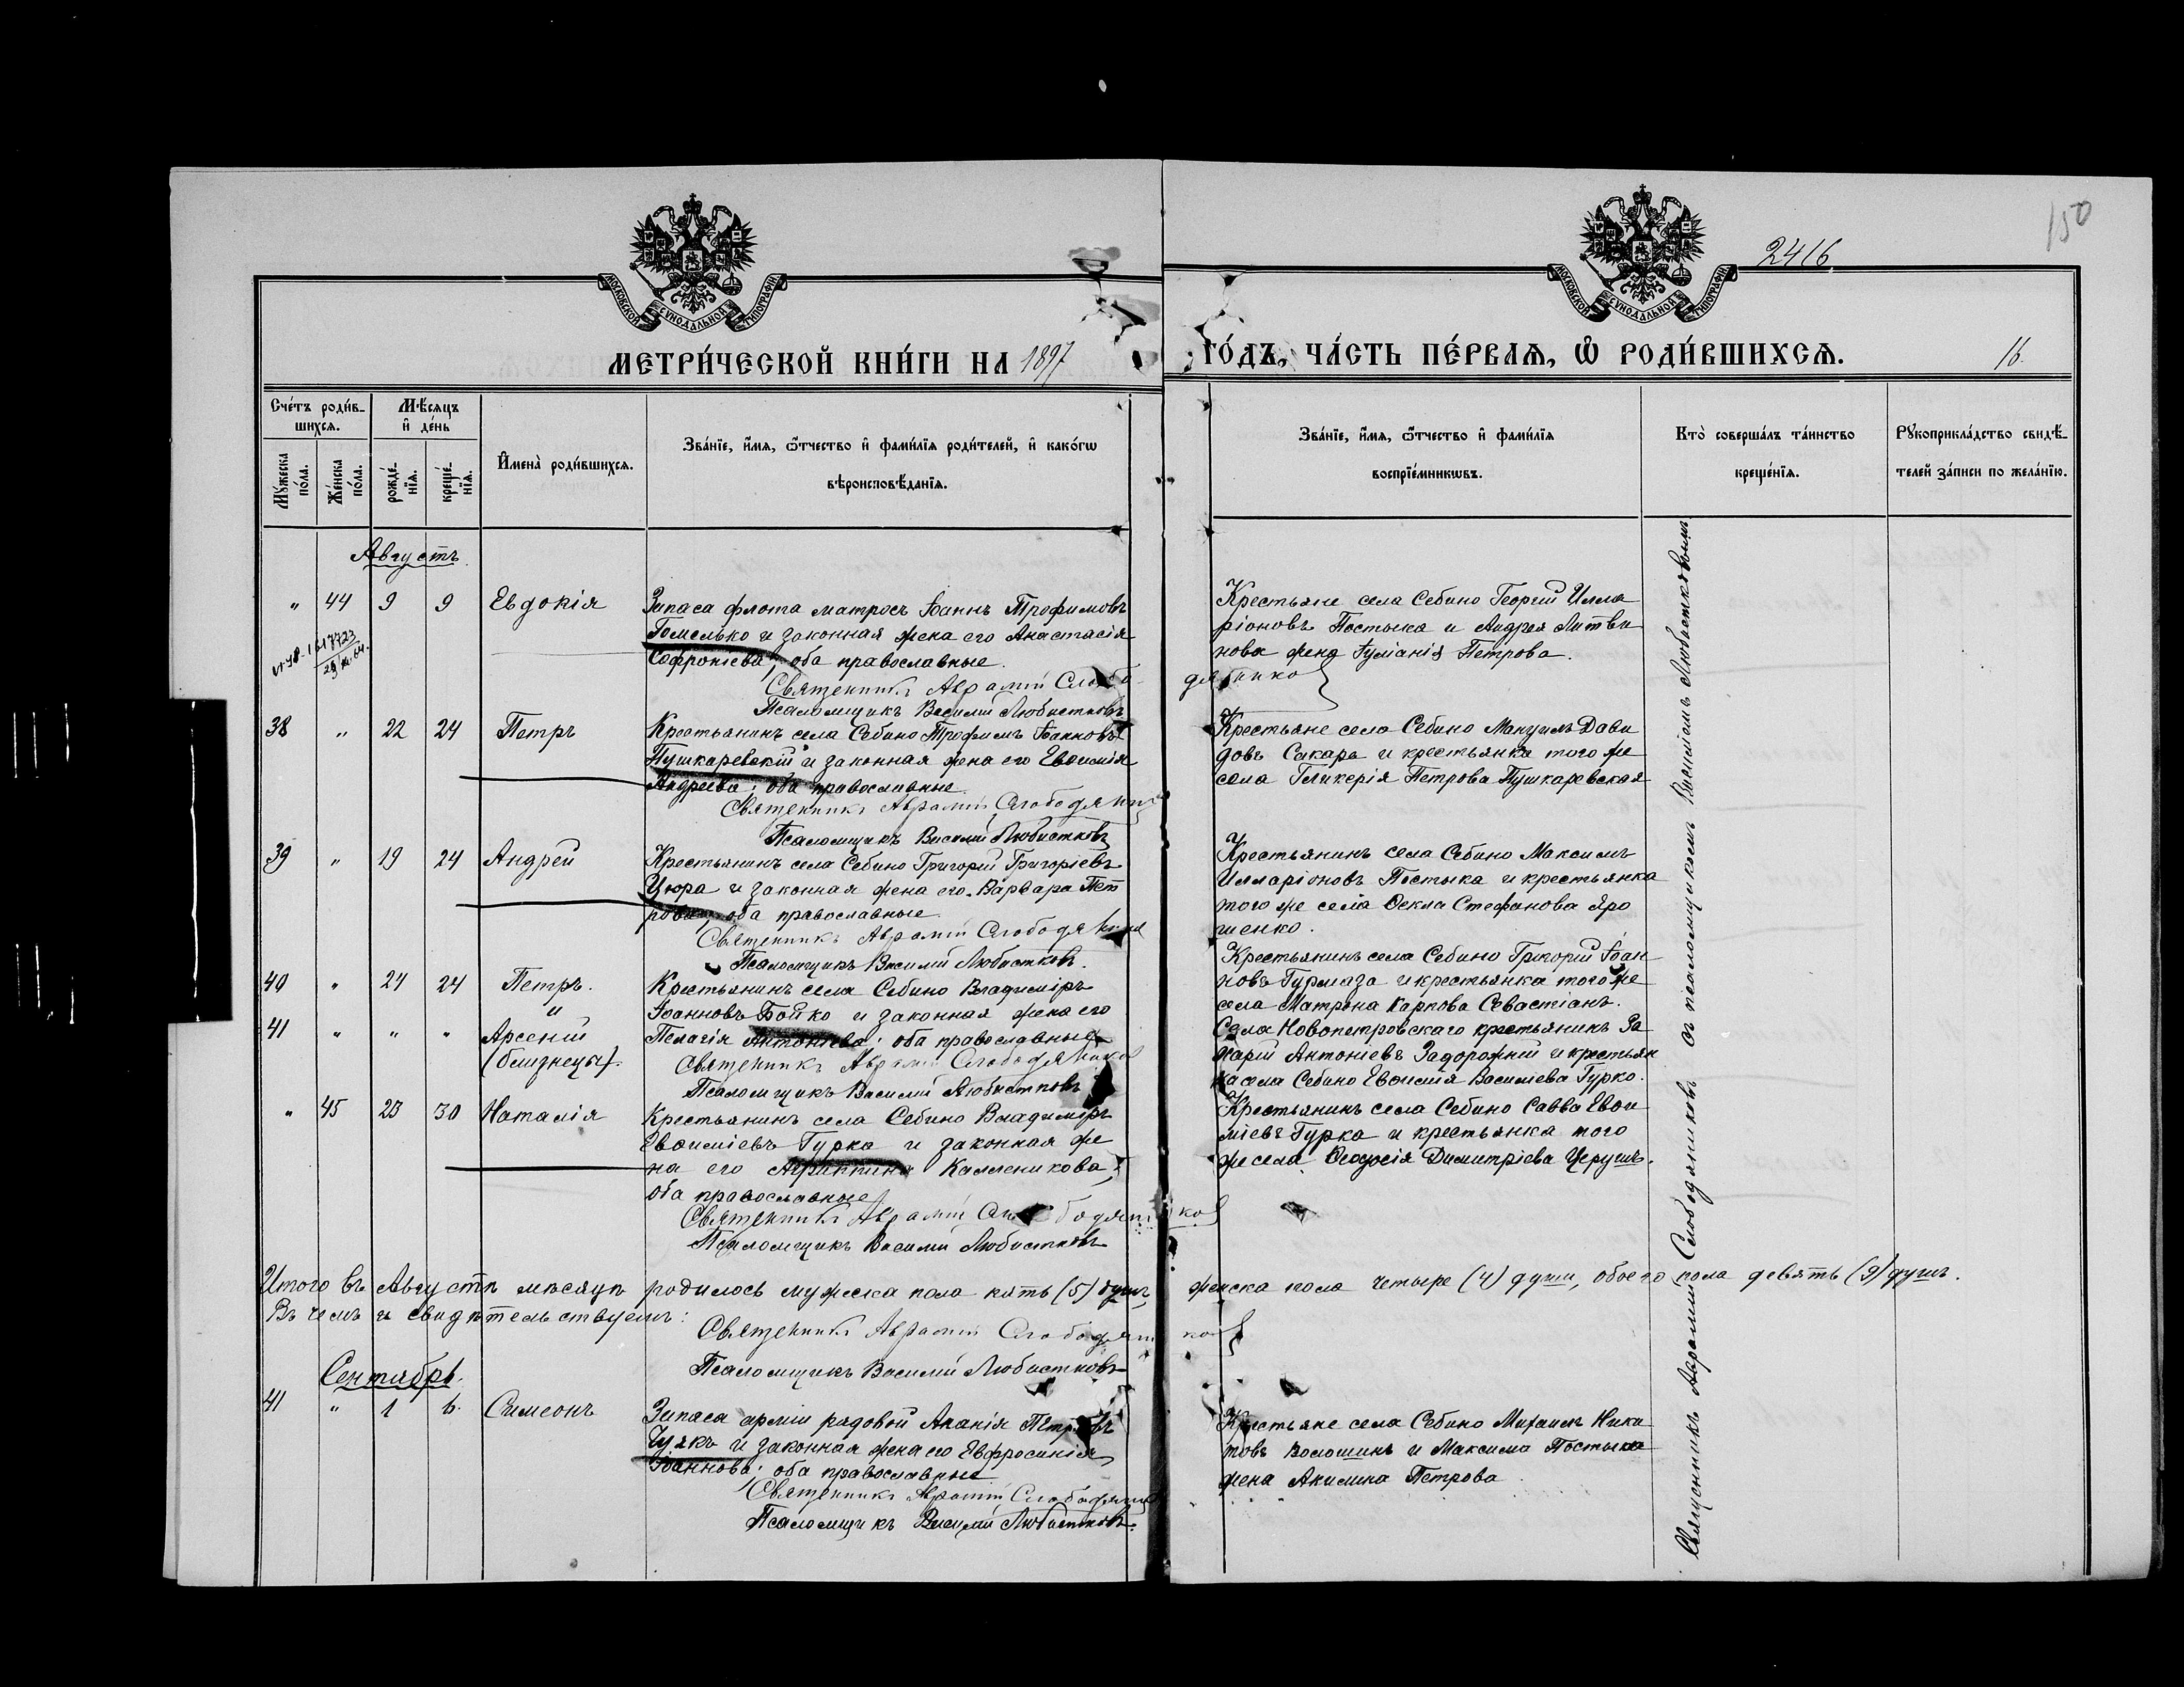 150
2416
МОСКОВСКОЙ СѴНОДАЛЬНОЙ ТИПОГРАФІИ
МОСКОВСКОЙ СѴНОДАЛЬНОЙ ТИПОГРАФІИ
МЕТРИ́ЧЕСКОЙ КНИ́ГИ НА 1897 ГО́ДЪ, ЧА́СТЬ ПЕ́РВАѦ, Ѡ҆ РОДИ́ВШИХСѦ.
16.
Сче́тъ роди́в-
шихсѧ.
Му́жеска по́ла.
Же́нска по́ла.
Мѣ́сѧцъ и҆ де́нь
рожде́-
нїѧ.
креще́-
нїѧ.
И҆мена̀ роди́вшихсѧ.
Зва́нїе, и҆́мѧ, ѻ҆́тчество и҆ фами́лїѧ роди́телей, и҆ како́гѡ
вѣроисповѣ́данїѧ.
Зва́нїе, и҆́мѧ, ѻ҆́тчество и҆ фами́лїѧ
воспрїе́мникѡвъ.
Кто̀ соверша́лъ та́инство
креще́нїѧ.
Рꙋкоприкла́дство свидѣ́-
телей за́писи по жела́нїю.
Августъ
„ 44 9 9 Евдокія
Запаса флота матросъ Іоаннъ Трофимовъ
Гомелько и законная жена его Анастасія
Софроніева; оба православные.
Священникъ Аврамій Слободяников
Псаломщикъ Василій Любистковъ
Крестьяне села Себино Георгій Илла
ріоновъ Постыка и Андрея Литви
нова жена Іуліанія Петрова.
38 „ 22 24 Петръ
Крестьянинъ села Себино Трофимъ Іоанновъ
Пушкаревскій и законная жена его Евѳимія
Андреева; оба православные
Священникъ Аврамій Слободяник
Псаломщикъ Василій Любистковъ
Крестьяне села Себино Мануилъ Дави
довъ Сикаръ и крестьянка того же
села Гликерія Петрова Пушкаревская
39 „ 19 24 Андрей
Крестьянинъ села Себино Григорій Григоріевъ
Цюра и законная жена его Варвара Пет
рова; оба православные
Священникъ Аврамій Слободяников
Псаломщикъ Василій Любистков.
Крестьянинъ села Себино Максимъ
Илларіоновъ Постыка и крестьянка
того же села Ѳекла Стефанова Яро
шенко.
40 „ 24 24 Петръ.
41 „ „ „ Арсеній
(близнецы).
Крестьянинъ села Себино Владиміръ
Іоанновъ Бойко и законная жена его
Пелагія Антоніева; оба православные
Священникъ Аврамій Слободяников
Псаломщикъ Василій Любистковъ
Крестьянинъ села Себино Григорій Іоан
новъ Гурмаза и крестьянка того же
села Матрона Карпова Севастіанъ.
Села Новопетровскаго крестьянинъ За
харій Антоніевъ Задорожній и крестьян
ка села Себино Евѳимія Василіева Гурко.
„ 45 23 30 Наталія
Крестьянинъ села Себино Владиміръ
Евѳиміевъ Гурка и законная же
на его Агриппина Каллсникова;
оба православные
Священникъ Аврамій Слободяников
Псаломщикъ Василій Любистковъ
Крестьянинъ села Себино Савва Евѳи
міевъ Гурка и крестьянка того
же села Ѳеодосія Димитріева Церушъ.
Итого въ Августѣ мѣсяцѣ родилось мужеска пола пять (5) душъ, женска пола четыре (4) души, обоего пола девять (9) душъ.
Въ чемъ и свидѣтельствуемъ:
Священникъ Аврамій Слободяников
Псаломщикъ Василій Любистковъ
Сентябрь.
41 „ 1 6. Симеонъ
Запаса арміи рядовой Ананія Петровъ
Чуякъ и законная жена его Евфросинія
Іоаннова; оба православные
Священникъ Аврамій Слободяник
Псаломщикъ Василій Любистковъ.
Крестьяне села Себино Михаилъ Ники
товъ Волошинъ и Максима Постыка
жена Акилина Петрова
Священникъ Аврамій Слободяниковъ съ псаломщикомъ Василіемъ Любистковымъ